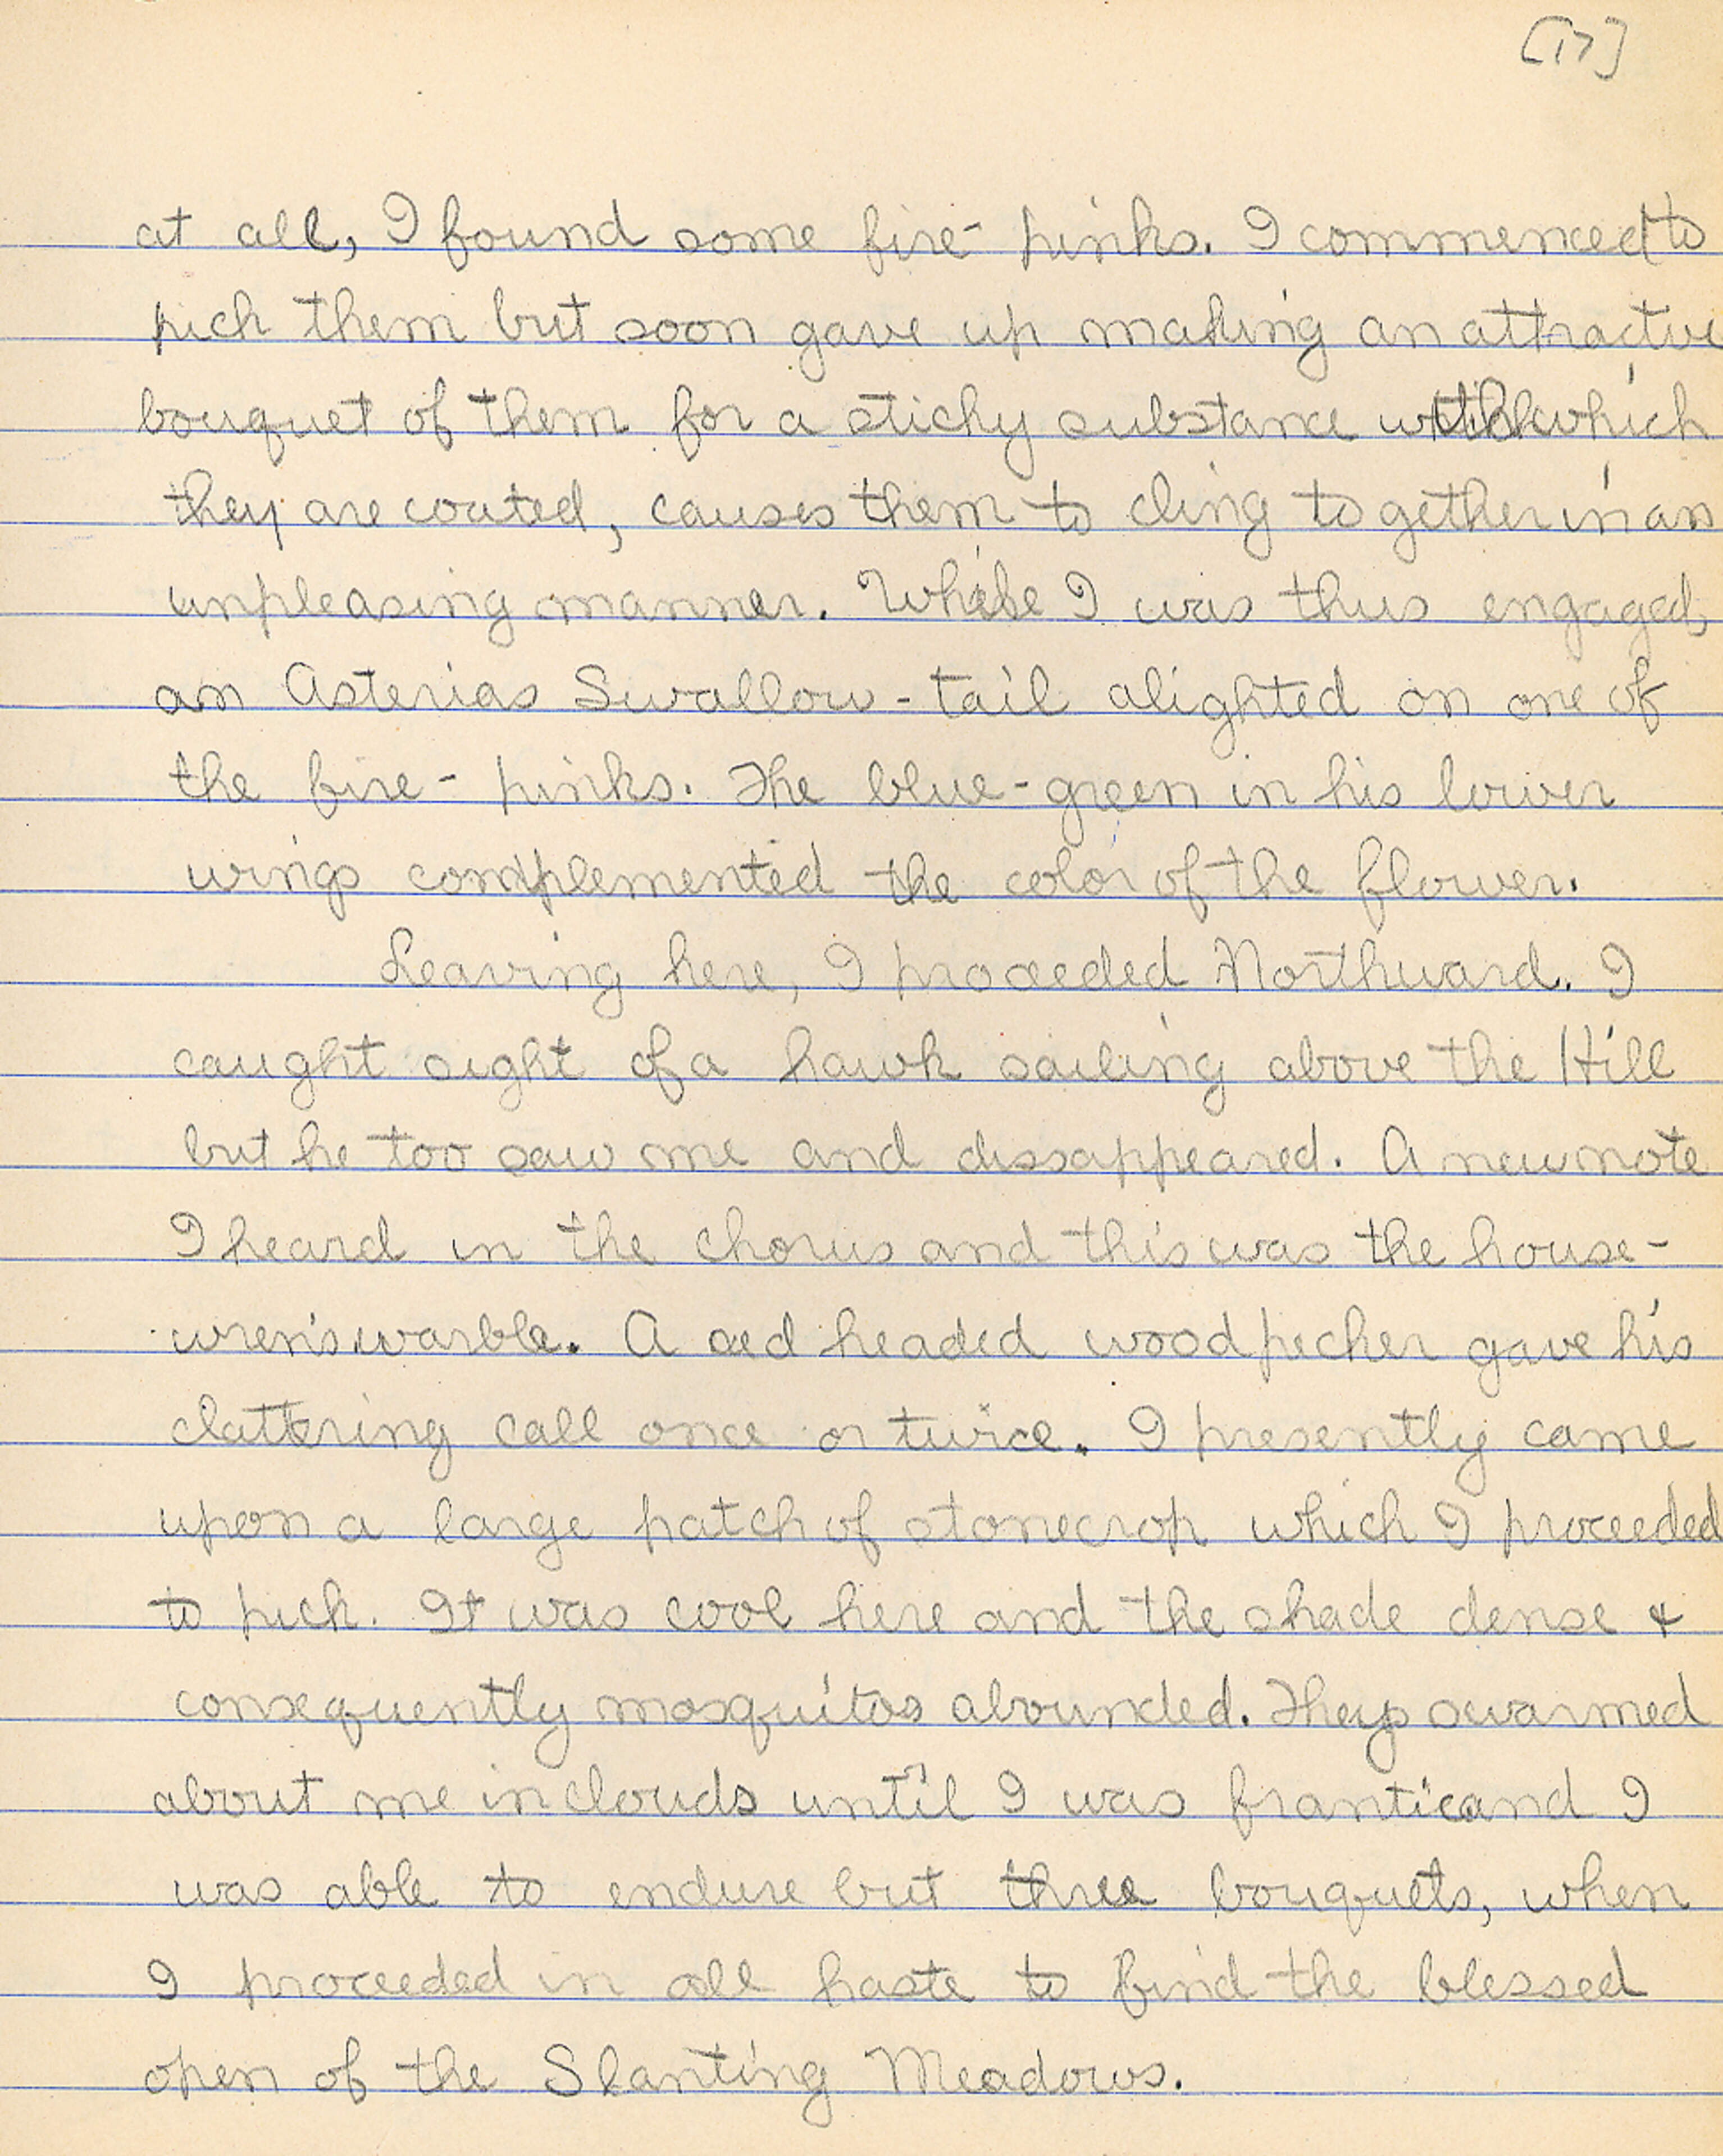 [17]
at all, I found some fire- pinks. I commenced to
pick them but soon gave up making an attractive
bouquet of them for a sticky substance with which
they are coated, causes them to cling together in an
unpleasing manner. While I was thus engaged,
an Asterias Swallow-tail alighted on one of
the fire- pinks. The blue-green in his lower
wings complemented the color of the flower.
Leaving here, I proceeded Northward. I
caught sight of a hawk sailing above the Hill
but he too saw me and dissappeared. A new note
I heard in the chorus and this was the house-
wren's warble. A red headed woodpecker gave his
clattering call once or twice. I presently came
upon a large patch of stonecrop which I proceeded
to pick. It was cool here and the shade dense &
consequently mosquitos abounded. They swarmed
about me in clouds until I was frantic and I
was able to endure but three bouquets, when
I proceeded in all haste to find the blessed
open of the Slanting Meadows.